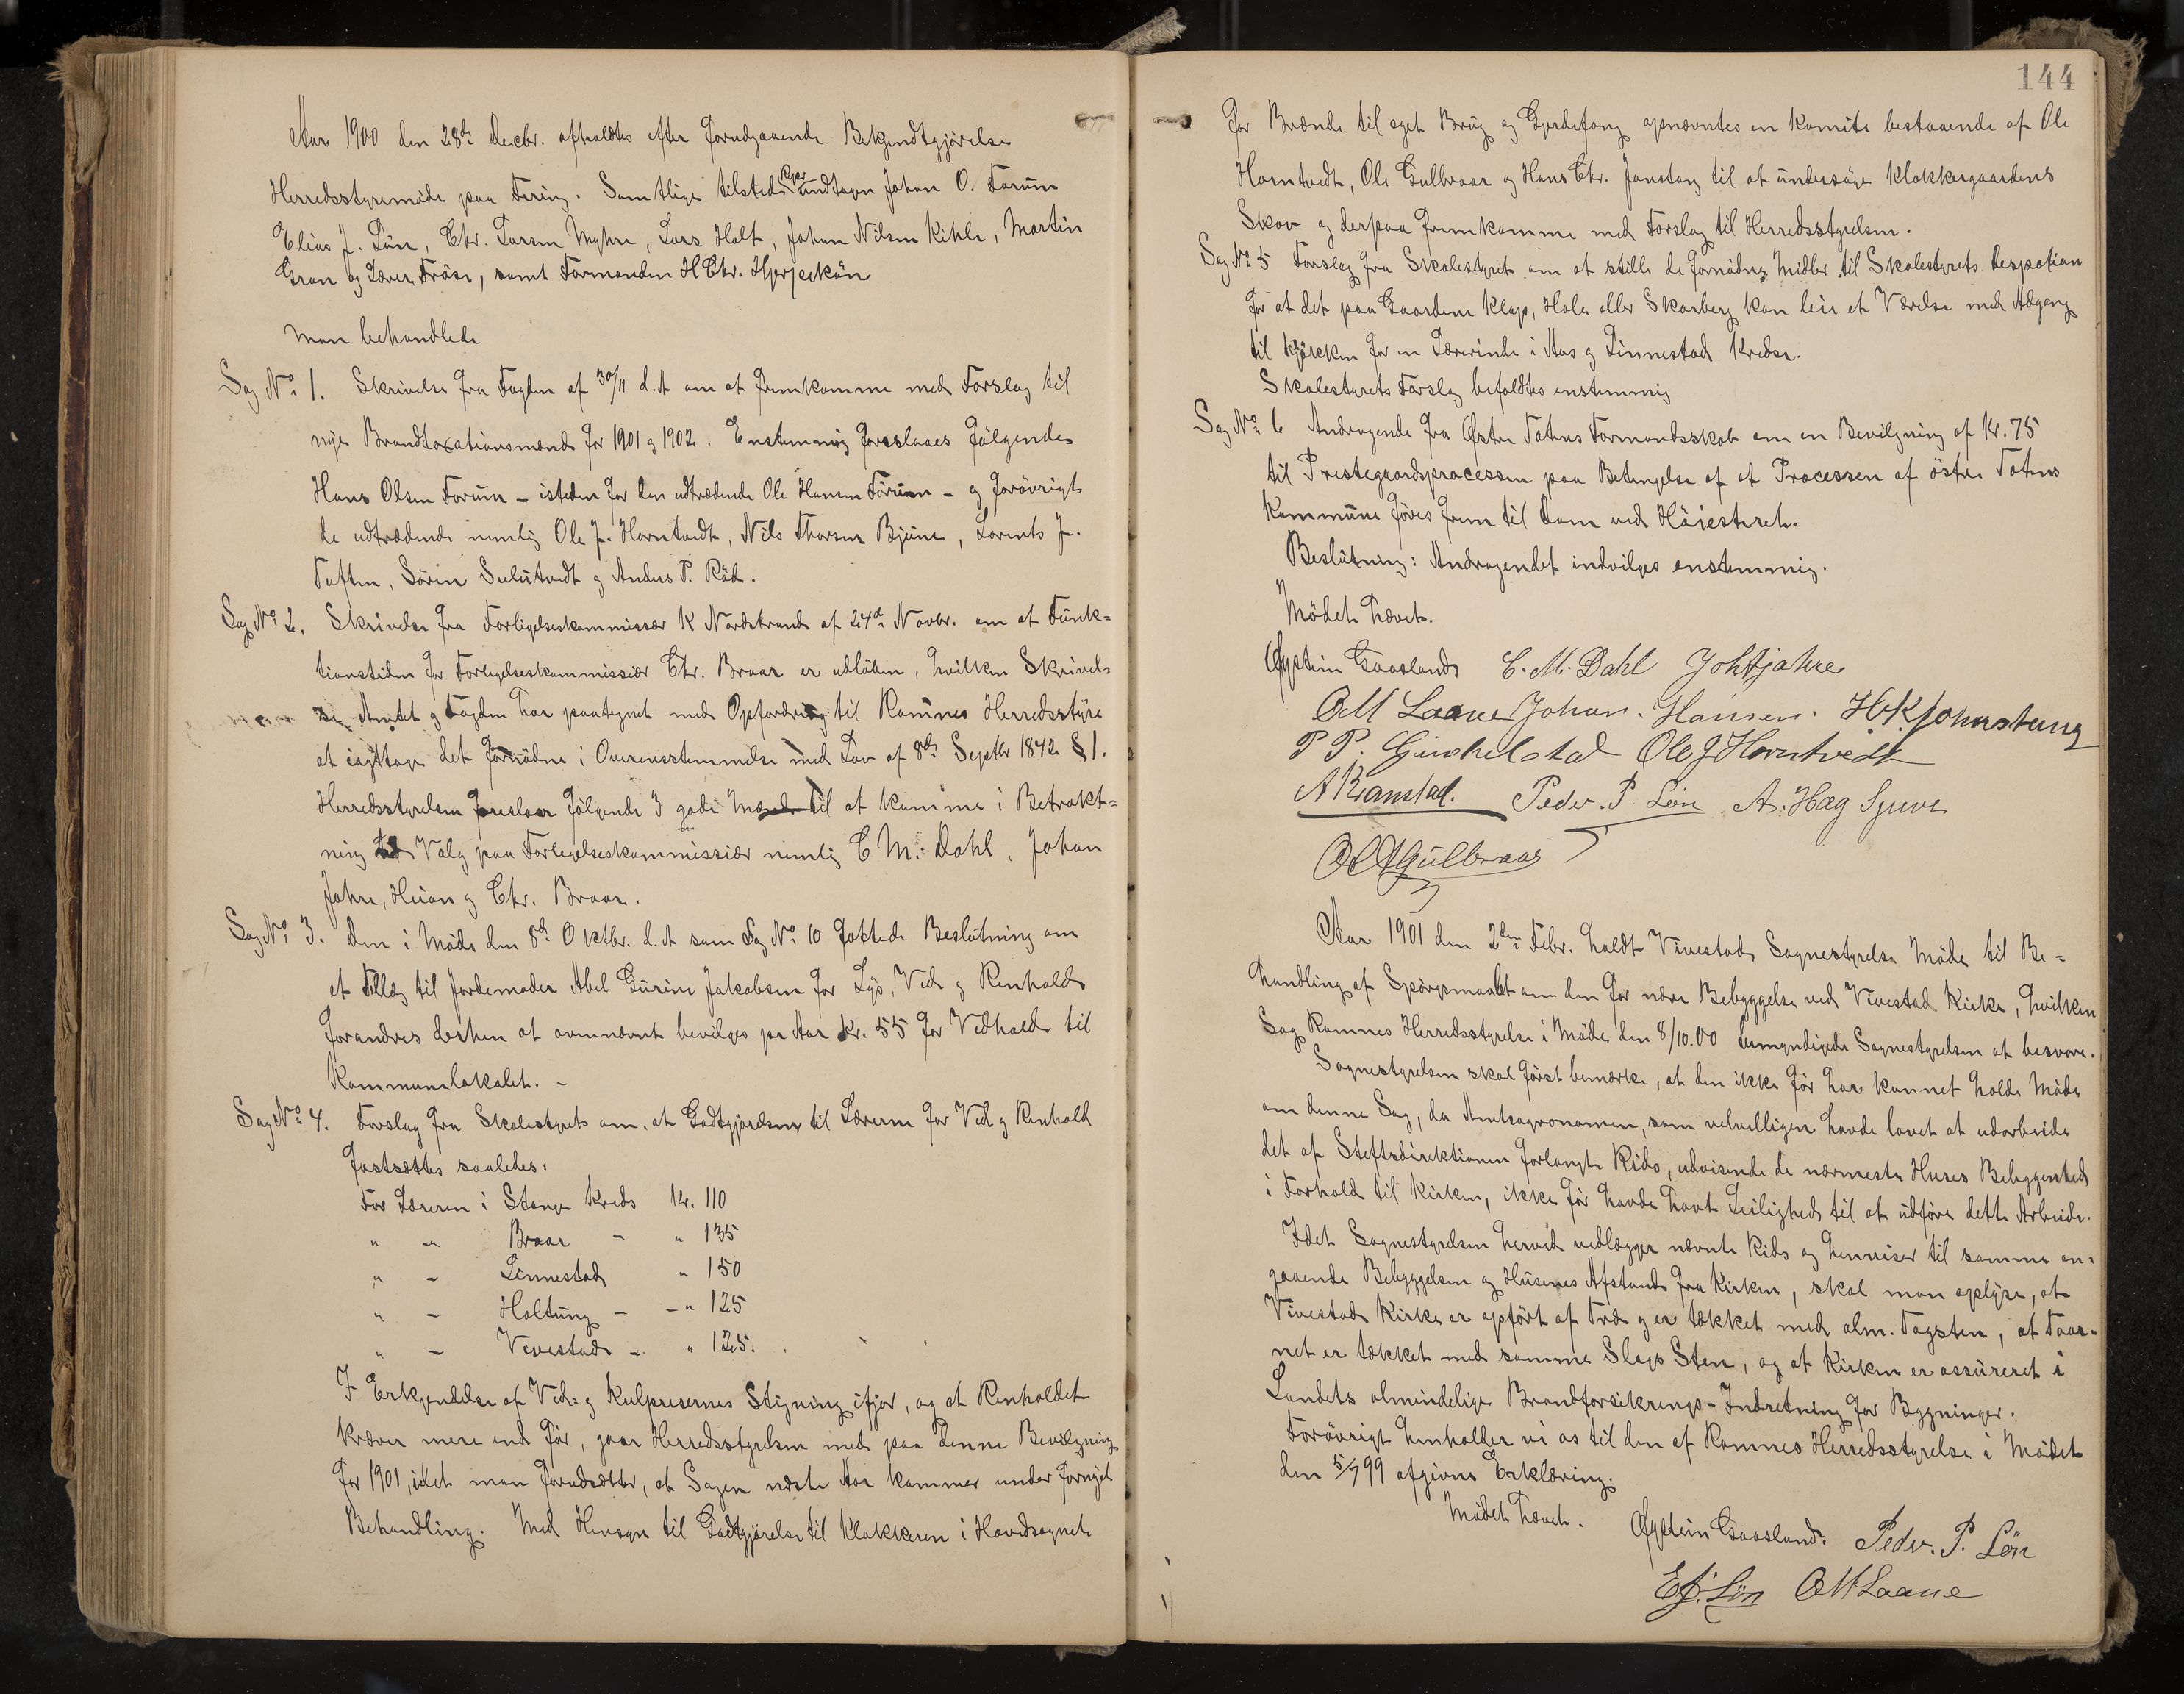 Aar 1900 den 28de Decbr. afholdtes efter forudgaaende Bekjendtgjörelse
Herredsstyremöde paa Fering. Samtlige tilstede undtagen Johan O. Forum
Elias J. Lön, Chr. Larsen Myhre, Lars Holt, Johan Nilsen Kihle, Martin
Gran og Lærer Fröse, samt Formanden H Chr.
Man behandlede
Sag No 1. Skrivelse fra Fogden af 30/11 d.A om at fremkomme med Forslag til
nye Brandtaxationsmænd for 1901 og 1902. Enstemmig foreslaaes fölgende
Hans Olsen Forum – isteden for den udtrædende Ole Hansen Forum – og forövrigt
de udtrædende nemlig Ole J. Horntvedt, Nils Thorsen Bjune, Lorents J.
Tuften, Sören Sulutvedt og Anders P. Röd.
Sag No 2. Skrivelse fra Forligelseskommissær K Nordstrand af 24de Novbr. om at Funk=
tionstiden for Forligelseskommissiær Chr. Braar er udlöben, hvilken Skrivel=
se Amtet og Fogden har paategnet med Opfordring til Ramnes Herredsstyre
at iagttage det fornödne i Overensstemmelse med Lov af 8de Septbr 1842 § 1.
Herredsstyrelsen foreslaar fölgende 3 gode Mænd til at komme i Betrakt=
ning ved Valg paa Forligelseskommissiær nemlig C M. Dahl, Johan
Jahre, Huian og Chr. Braar.
Sag No 3. Den i Möde den 8de Oktbr. d.A som Sag No 10 fattede Beslutning om
et Tillæg til Jordemoder Abel Gurine Jakobsen for Lys, Ved og Renhold
forandres derhen at ovennævnt bevilges pr Aar Kr. 55 for Vedhold til
Kommunelokalet. –
Sag No 4. Forslag fra Skolestyret om at Godtgjörelsen til Lærerne for Ved og Renhold
fastsættes saaledes:
For Læreren i Stange Kreds Kr. 110
" " Braar – " 135
" – Linnestad " 150
" – Holtung – – " 125
" – Vivestad – " 125.
I Erkjendelse af Ved- og Kulprisernes Stigning ifjor, og at Renholdet
kræver mere end för, gaar Herredsstyrelsen med paa denne Bevilgning
for 1901, idet man forudsætter, at Sagen næste Aar kommer under fornyet
Behandling. Med Hensyn til Godtgjörelse til Klokkeren i Hovedsognet
144
for Brænde til eget Brug og Gjerdefang opnævntes en Komite bestaaende af Ole
Horntvedt, Ole Gulbraar og Hans Chr. Jonstang til at undersöge Klokkergaardens
Skov og derpaa fremkomme med Forslag til Herredsstyrelsen.
Sag No 5 Forslag fra Skolestyret om at stille de fornödne Midler til Skolestyrets Desposition
for at det paa Gaardene Klop, Hole eller Skarberg kan leie et Værelse med Adgang
til Kjökken for en Lærerinde i Aas og Linnestad Kredse.
Skolestyrets Forslag befoldtes enstemmig
Sag No 6 Andragende fra Østre Totens Formandsskab om en Bevilgning af Kr. 75
til Prestegaardsprocessen paa Betingelse af at Processen af östre Totens
Kommune föres frem til Dom ved Höiesteret.
Beslutning: Andragendet indvilges enstemmig.
Mödet hævet.
Øystein Gaasland C. M. Dahl Joh Jahre
O M Laane Johan. Hansen. H K Johnstang
P P. Ole J Horntvedt
A Ramstad. Peder. P. Lön A. Hæg Sjuve
Ol Gulbraar
Aar 1901 den 2den Febr. holdt Vivestad Sognestyrelse Möde til Be=
handling af Spörgsmaalet om den for nære Bebyggelse ved Vivestad Kirke, hvilken
Sag Ramnes Herredsstyrelse i Möde den 8/10.00 bemyndigede Sognestyrelsen at besvare.
Sognestyrelsen skal först bemærke, at den ikke för har kunnet holde Möde
om denne Sag, da Amtsagronomen, som velvilligen havde lovet at udarbeide
det af Stiftsdirektionen forlangte Rids, udvisende de nærmeste Huses Beliggenhed
i Forhold til Kirken, ikke för havde havt Leilighed til at udföre dette Arbeide.
Idet Sognestyrelsen herved vedlægger nævnte Rids og henviser til samme an=
gaaende Bebyggelsen og Husenes Afstand fra Kirken, skal man oplyse, at
Vivestad Kirke er opfört af Træ og er tækket med alm. Tagsten, at Taar=
net er tækket med samme Slags Sten, og at Kirken er assureret i
Landets almindelige Brandforsikrings-Indretning for Bygninger.
Forövrigt henholder vi os til den af Ramnes Herredsstyrelse i Mödet
den 5/7 99 afgivne Erklæring.
Mödet hævet. Øystein Gaasland. Peder. P. Lön
E J. Lön O M Laane